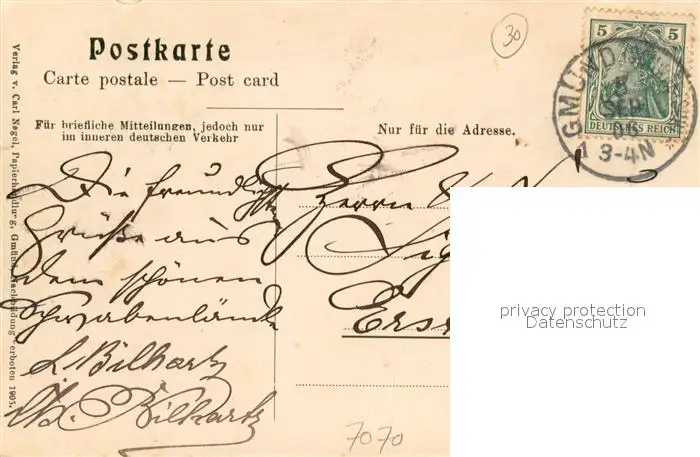 Postkarte
Carte postale — Post card
Für briefliche Mitteilungen, jedoch nur
im inneren deutschen Verkehr
Nur für die Adresse.
Verlag v. Carl Nagel, Papierhandlung, Gmünd. Nachbildung verboten 1905.
30
5 5
DEUTSCHES REICH
GMÜND
SEP
3-4N
Die freundlichsten
Grüße aus
dem schönen
Schwabenlande
L. Bilhartz
Bilhartz
Herrn
Sig
Ers
7070
privacy protection
Datenschutz